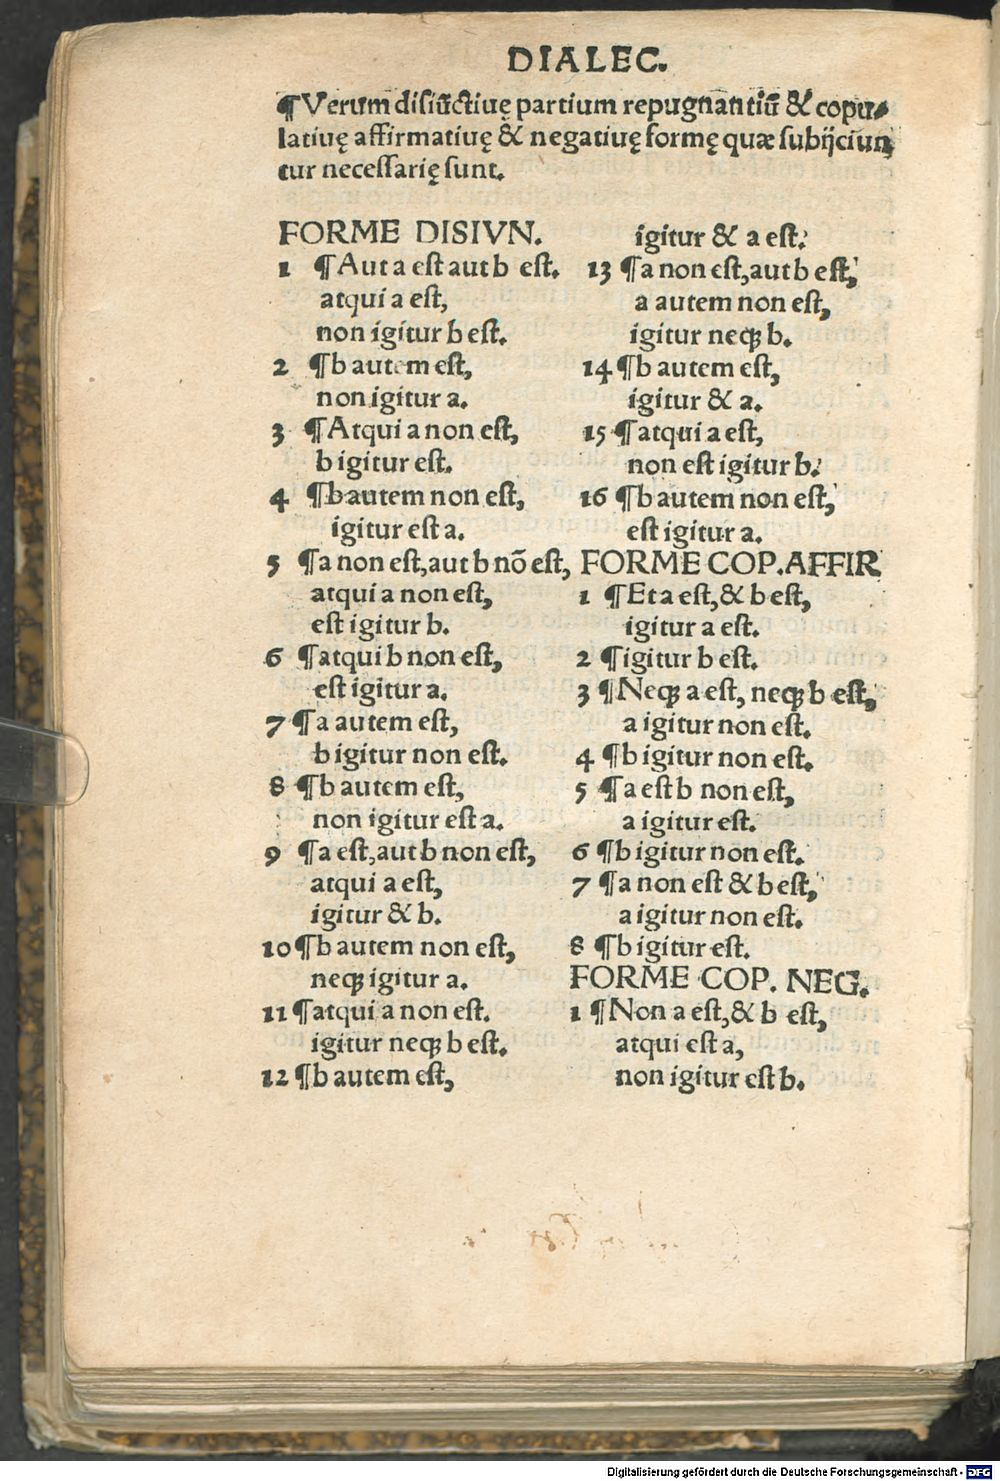 DIALEC.
¶Verum disiūctiuę partium repugnantiū & copu-
latiuę affirmatiuę & negatiuę formę quæ subijciun
tur necessarię sunt.
FORME DISIVN.
1 ¶Aut a est aut b est.
atqui a est,
non igitur b est.
2 ¶b autem est,
non igitur a.
3 ¶Atqui a non est,
b igitur est.
4 ¶b autem non est,
igitur est a.
5 ¶a non est, aut b nō est,
atqui a non est,
est igitur b.
6 ¶atqui b non est,
est igitur a.
7 ¶a autem est,
b igitur non est.
8 ¶b autem est,
non igitur est a.
9 ¶a est, aut b non est,
atqui a est,
igitur & b.
10 ¶b autem non est,
neqꝫ igitur a.
11 ¶atqui a non est.
igitur neqꝫ b est.
12 ¶b autem est,
igitur & a est.
13 ¶a non est, aut b est,
a autem non est,
igitur neqꝫ b.
14 ¶b autem est,
igitur & a.
15 ¶atqui a est,
non est igitur b.
16 ¶b autem non est,
est igitur a.
FORME COP. AFFIR
1 ¶Et a est, & b est,
igitur a est.
2 ¶igitur b est.
3 ¶Neqꝫ a est, neqꝫ b est,
a igitur non est.
4 ¶b igitur non est.
5 ¶a est b non est,
a igitur est.
6 ¶b igitur non est.
7 ¶a non est & b est,
a igitur non est.
8 ¶b igitur est.
FORME COP. NEG.
1 ¶Non a est, & b est,
atqui est a,
non igitur est b.
Digitalisierung gefördert durch die Deutsche Forschungsgemeinschaft - DFG